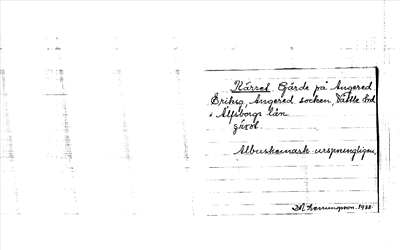 Kärret Gärde på Angered
Eriksg, Angered socken, Vättle hd
i Älfsborgs län
gärot
Albuskemark ursprungligen.
1922.